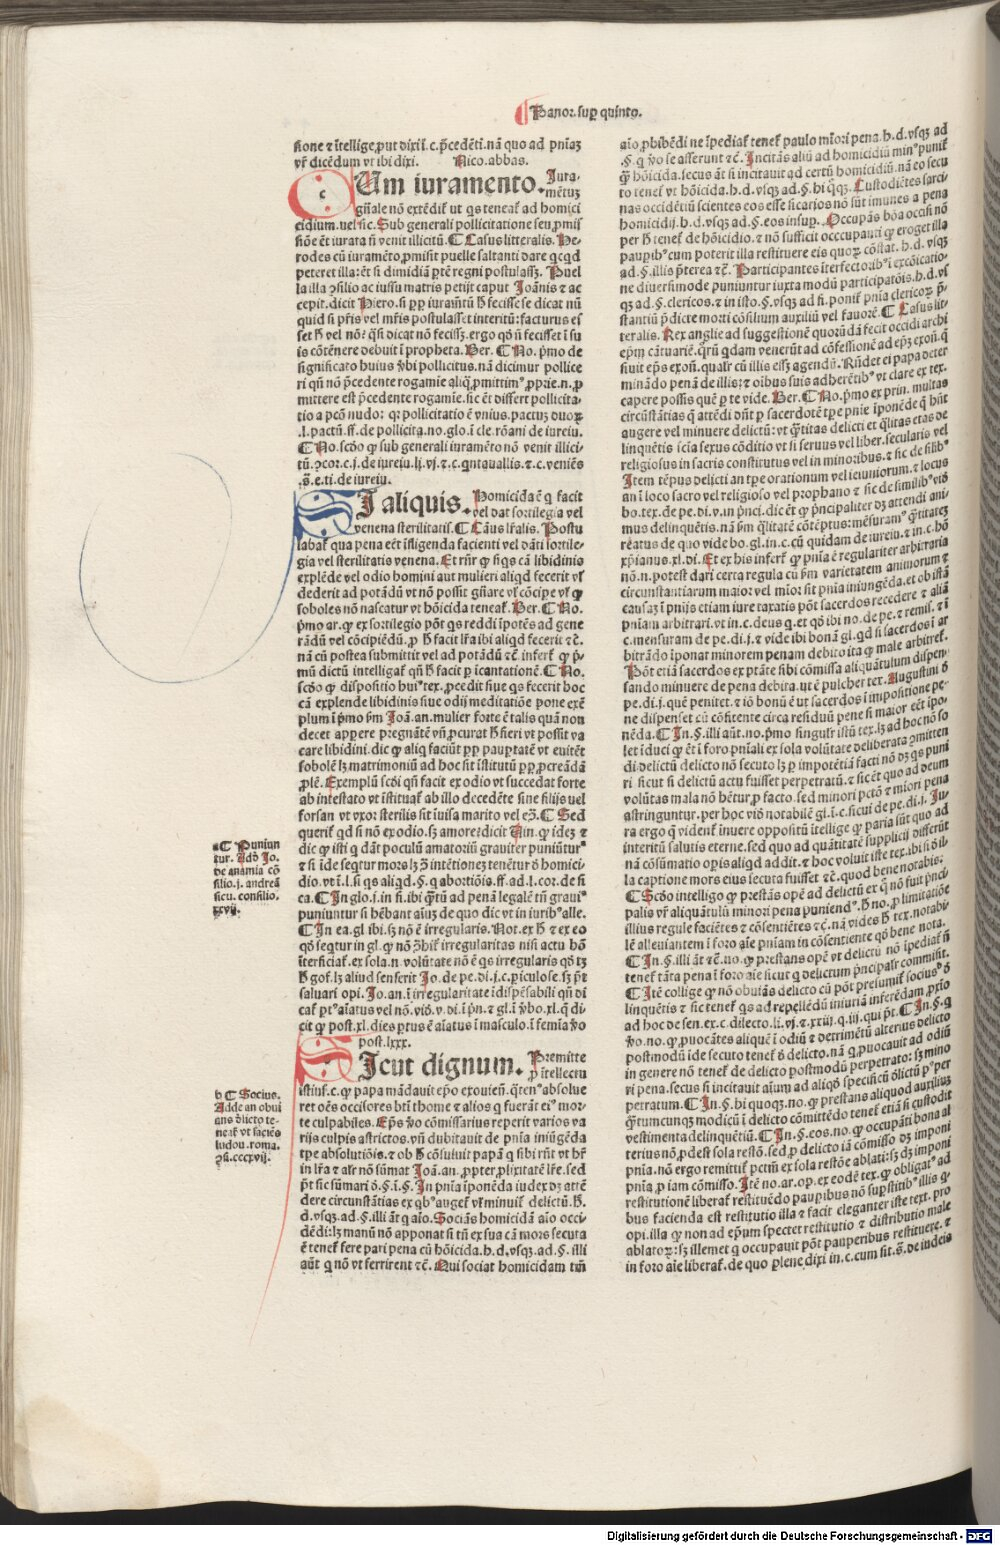 Panor. sup quinto.
sione ⁊ ītellige, put dixi ī.c. p̄cedēti. nā quo ad pniaȝ
vr̄ dicēdum vt ibi dixi. Nico. abbas.
CUm iuramento. Iura-
mētuȝ
gn̄ale nō extēdit̄ ut qs teneat̄ ad homici
cidium. uel sic. Sub generali pollicitatione seu, pmis
siōe ēt iurata n̄ venit illicitū. ¶ Casus litteralis. He-
rodes cū iuramēto, pmisit puelle saltanti dare qcqd
peteret illa: ēt si dimidiā ptē regni postulassȝ. Puel
la illa ↄsilio ac iussu matris petijt caput Joānis ⁊ ac
cepit. dicit Piero. si pp iuram̄tū h̄ fecisse se dicat nū
quid si pr̄is vel mr̄is postulasset interitū: facturus es
set h̄ vel nō: ē q̄si dicat nō fecissȝ. ergo qd̄ n̄ fecisset ī su
is cōtēnere debuit ī propheta. Ber. ¶ No. pmo de
significato huius v̄bi pollicitus. nā dicimur pollice
ri qn̄ nō p̄cedente rogamie aliq̄, pmittim⁹, pprie. n. p
mittere est p̄cedente rogamie. sic ēt differt pollicita-
tio a pcō nudo: q: pollicitatio ē vnius. pactuȝ duoꝝ
.l. pactū. ff. de pollicita. no. glo. ī cle. rōani de iureiu.
¶ No. scd̄o ꝙ sub generali iuramēto nō venit illici-
tū. ↄcor. c. j. de iureiu. lj. vj. ⁊ c. qntauallis. ⁊ c. veniēs
.s̄. e. ti. de iureiu.
SI aliquis. Homicida ē q facit
vel dat sortilegia vel
venena sterilitatis. ¶ Cāus lr̄alis. Postu
labat̄ qua pena eēt īfligenda facienti vel dāti sortile-
gia vel sterilitatis venena. Et rn̄r ꝙ si qs cā libidinis
explēde vel odio homini aut mulieri aliqd fecerit vl̄
dederit ad potādū vt nō possit gn̄are vl̄ cōcipe vl̄ ꝙ
soboles nō nascatur vt hōicida teneat̄. Ber. ¶ No.
pmo ar. ꝙ ex sortilegio pōt qs reddi īpotēs ad gene
rādū vel cōcipiēdū. p h̄ facit lr̄a ibi aliqd fecerit ⁊c̄.
nā cū postea submittit vel ad potādū ⁊c̄. infert̄ ꝙ p̄-
mū dictū intelligat̄ qn̄ h̄ facit p īcantationē. ¶ No.
scd̄o ꝙ dispositio hui⁹ tex. pcedit siue qs fecerit hoc
cā explende libidinis siue odij meditatiōe pone exē
plum ī p̄mo s̄m Joā. an. mulier forte ē talis quā non
decet apperere pregnātē vn̄, pcurat h̄ fieri vt possit va
care libidini. dic ꝙ aliq faciūt pp paup̄tatē vt euitēt
sobolē lȝ matrimoniū ad hoc sit īstitutū pp pcreādā
plē. Exemplū scd̄i qn̄ facit ex odio vt succedat forte
ab intestato vt īstituat̄ ab illo decedēte sine filijs uel
forsan vt vxor sterilis sit īuisa marito vel ecȝ. ¶ Sed
querit̄ qd si nō ex odio. sȝ amore: dicit Uin. ꝙ ideȝ ⁊
dic ꝙ isti q dāt poculū amatoriū grauiter puniūtur⁹
⁊ si īde seqtur mors lȝ ꝫ intētioneȝ tenēt̄ur d̄ homici-
dio. vt ī. l. si qs aliqd. §. q abortiōis. ff. ad. l. cor. de si
ca. ¶ In glo. j. in fi. ibi q̄tū ad penā legalē tn̄ graui⁹
puniuntur si hēbant aiūȝ de quo dic vt in iurib⁹ alle.
¶ In ea. gl ibi. sȝ nō ē irregularis. Not. ex h̄ ⁊ ex eo
qd̄ seqtur in gl. ꝙ nō ↄ̄hit̄ irregularitas nisi actu hō
īterficiat̄. ex sola. n. volūtate nō ē qs irregularis qd̄ tȝ
h̄ gof. lȝ aliud senserit Jo. de pe. di. j. c. piculose. sȝ p̄t
saluari opi. Jo. an. ī irregularitate īdispēsabili qn̄ di
cat̄ pt⁹ aīatus vel nō. vid̄. v. di. ī pn̄. ⁊ gl. ī v̄bo. xl. q̄ di
cit ꝙ post. xl. dies ptus ē aīatus ī masculo. ī femīa v̄o
post. lxxx.
SIcut dignum. Premitte
p ītellectu
istiusf. c. ꝙ papa mādauit epō exouien̄. q̄ten⁹ absolue
ret oēs occisores bt̄i thome ⁊ alios q fuerāt ei⁹ mor-
te culpabiles. Ep̄s v̄o cōmissarius reperit varios va
rijs culpis astrictos. vn̄ dubitauit de pnia iniūgēda
tpe absolutiōis. ⁊ ob h̄ cōsuluit papā q sibi rn̄t vt br̄
in lr̄a ⁊ a⁊r nō sūmat Joā. an. ppter plixitatē lr̄e. sed
p̄t sic sūmari d̄. §. ī. §. In pnīa īponēda iudex dȝ attē
dere circunstātias ex qb⁹ auget̄ vl̄ minuit̄ delictū. h̄.
d. vsqȝ. ad. §. illi āt q aīo. Sociās homicidā aīo occi
dēdi: lȝ manū nō apponat si tn̄ ex sua cā mors secuta
ē tenet̄ fere pari pena cū hōicida. h. d. vsqȝ. ad. §. illi
aūt q nō vt ferrirent ⁊c̄. Qui sociat homicidam tn̄i
a¶ Puniun
tur. Adō Jo.
de anania cō
silio. j. andreā
sicu. consilio.
xxvij.
b ¶ Socius.
Adde an obui
ans d̄licto te-
neat̄ vt faciēs
ludou. roma.
ↄs. cccxvij.
aīo, phibēdi ne īpediat̄ tenet̄ paulo mīori pena. h. d. vsqȝ ad
.§. q v̄o se asserunt ⁊c̄. Incitās aliū ad homicidiū min⁹ punit̄
q̄ hōicida. secus āt si incitauit ad certū homicidiū. nā eo secu
to tenet̄ vt hōicida. h. d. vsqȝ ad. §. hi q̄qȝ. Custodiētes sarci-
nas occidētiū scientes eos esse sicarios nō sūt imunes a pena
homicidij. h. d. vsqȝ ad. §. eos insup. Occupās bōa occisi nō
per h̄ tenet̄ de hōicidio. ⁊ nō sufficit occcupanti ꝙ eroget illa
paupib⁹ cum poterit illa restituere eis quoꝝ cōstat. h. d. vsqȝ
ad. §. illis p̄terea ⁊c̄. Participantes īterfectorib⁹ ī excōicatio-
ne diuersimode puniuntur iuxta modū participatōis. h. d. vs
qȝ ad. §. clericos. ⁊ in isto. §. vsqȝ ad fi. ponit̄ pnīa clericoꝝ p̄-
stantiū p̄dicte morti cōsilium auxiliū vel fauorē. ¶ Casus lit-
teralis. Rex anglie ad suggestionē quorūdā fecit occidi archi
ep̄m cātuariē. q̄rū qdam venerūt ad cōfessionē ad ep̄m exon̄. q̄
siuit ep̄s exon̄. qualr̄ cū illis essȝ agendū. Rn̄det ei papa deter
minādo penā de illis: ⁊ oībus suis adherētib⁹ vt clare ex tex.
capere possis quē p te vide. Ber. ¶ No. pmo ex prin. multas
circūstātias q̄ attēdi dn̄t p sacerdotē tpe pnīe īponēde q̄ hn̄t
augere vel minuere delictū: vt q̄titas delicti et q̄litas etas de
linquētis scīa sexus cōditio vt si seruus vel liber. secularis vel
religiosus in sacris constitutus vel in minoribus. ⁊ sic de silib⁹
Item tēpus delicti an tpe orationum vel ieiuniorum. ⁊ locus
an ī loco sacro vel religioso vel prophano ⁊ sic de similib⁹ vid̄
bo. tex. de pe. di. v. in pn̄ci. dic ēt ꝙ pn̄cipaliter dȝ attendi ani
mus delinquētis. nā s̄m q̄litatē cōtēptus: mēsuram⁹ q̄titateȝ
reatus de quo vide bo. gl. in. c. cū quidam de iureiu. ⁊ in c. hō
xp̄ianus. xl. di. Et ex his infert̄ ꝙ pnīa ē regulariter arbitraria
nō. n. potest dari certa regula cū s̄m varietatem animorum ⁊
circunstantiarum maior vel mīor sit pnīa iniungēda. et ob istā
causaȝ ī pnijs etiam iure taxatis pōt sacerdos recedere ⁊ aliā
pniam arbitrari. vt in. c. deus q. et qd̄ ibi no. de pe. ⁊ remis. ⁊ ī
c. mensuram de pe. di. j. ⁊ vide ibi bonā gl. qd si sacerdos ī ar
bitrādo īponat minorem penam debito ita ꝙ male arbitret̄.
Pōt etiā sacerdos ex ptāte sibi cōmissa aliquātulum dispen-
sando minuere de pena debita. ut ē pulcher tex. Augustini d̄
pe. di. j. que penitet. ⁊ iō bonū ē ut sacerdos ī impositione pe-
ne dispenset cū cōfitente circa residuū pene si maior eēt īpo-
nēda. ¶ In. §. illi aūt. no. pmo singulr̄ istū tex. lȝ ad hoc nō so
let īduci ꝙ ēt ī foro pniali ex sola volūtate deliberata ↄmitten
di delictū delicto nō secuto lȝ p impotētiā facti nō dȝ qs puni
ri sicut si delictū actu fuisset perpetratū. ⁊ sic ēt quo ad deum
volūtas mala nō hēt̄ur, p facto. sed minori pctō ⁊ miori pena
astringuntur. per hoc vid̄ notabilē gl. ī. c. sicut de pe. di. j. Ju-
ra ergo q̄ vident̄ inuere oppositū ītellige ꝙ paria sunt quo ad
interitū salutis eterne. sed quo ad quātitatē supplicij differūt
nā cōsūmatio opis aliqd addit. ⁊ hoc voluit iste tex. ibi si d̄ il-
la captione mors eius secuta fuisset ⁊c̄. quod bene notabis:
¶ Scd̄o intelligo ꝙ prestās opē ad delictū ex q nō fuit pn̄ci
palis vr̄ aliquātulū minori pena puniend⁹. h̄ no. p limitatiōe
illius regule faciētes ⁊ cōsentiētes ⁊c̄. nā vides h̄ tex. notabi-
lē alleuiantem ī foro aīe pniam in cōsentiente qd̄ bene nota.
¶ In. §. illi āt ⁊c̄. no. ꝙ prestans opē vt delictū nō īpediat̄ n̄
tenet̄ tāta pena ī foro aīe sicut q delictum pn̄cipalr̄ commisit.
¶ Itē collige ꝙ nō obuiās delicto cū pōt presumit̄ socius d̄
linquētis ⁊ sic tenet̄ qs ad repellēdū iniuriā inferēdam pxīo
ad hoc de sen. ex. c. dilecto. li. vj. ⁊ xxiij. q. iij. qui pt̄. ¶ In. §. q
v̄o. no. ꝙ, puocātes aliquē ī odiū ⁊ detrimētū alterius delicto
postmodū īde secuto tenet̄ d̄ delicto. nā q, puocauit ad odiū
in genere nō tenet̄ de delicto postmodū perpetrato: sȝ mino
ri pena. secus si incitauit aīum ad aliqd̄ specificū d̄lictū p⁹per
petratum. ¶ In. §. hi quoqȝ. no. ꝙ prestans aliquod auxiliuȝ
q̄tumcunqȝ modicū ī delicto cōmittēdo tenet̄ etiā si custodit
vestimenta delinquētiū. ¶ In. §. eos. no. ꝙ occupāti bona al
terius nō, pdest sola restō. sed p delicto iā cōmisso dȝ imponi
pnīa. nō ergo remittit̄ pctm̄ ex sola restōe ablati: sȝ dȝ imponi
pnīa p iam cōmisso. Itē no. ar. op. ex eodē tex. ꝙ obligat⁹ ad
restitutionē liberat̄ restituēdo paupibus nō supstitib⁹ illis q-
bus facienda est restitutio illa ⁊ facit eleganter iste text. pro
opi. illa ꝙ non ad ep̄um specter restitutio ⁊ distributio male
ablatoꝝ: sȝ illemet q occupauit pōt pauperibus restituere. ⁊
in foro aīe liberat̄. de quo plene dixi in. c. cum sit. s̄. de iudeis
Digitalisierung gefördert durch die Deutsche Forschungsgemeinschaft - DFG